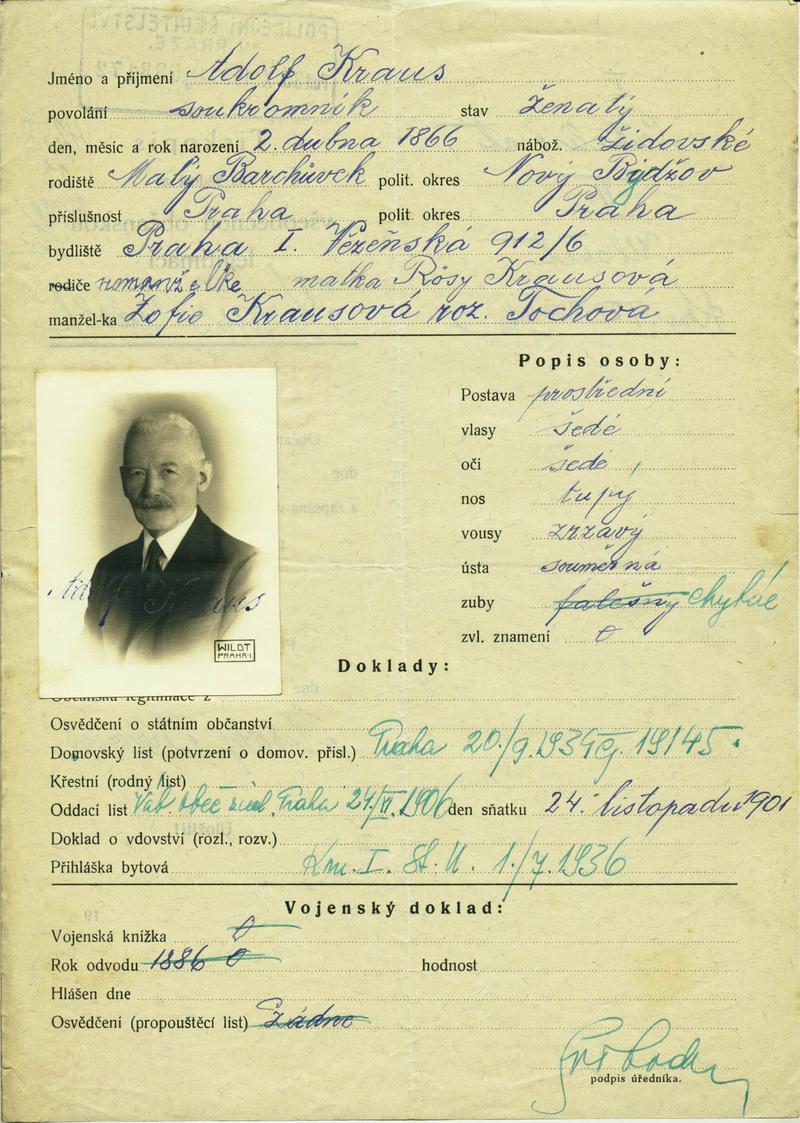 Jméno a příjmení Adolf Kraus
povolání soukromník stav ženatý
den, měsíc a rok narození 2. dubna 1866 nábož. židovské
rodiště Malý Barchůvek polit. okres Nový Bydžov
příslušnost Praha polit. okres Praha
bydliště Praha I. Vězeňská 912/6
rodiče matka Rósy Krausová
manžel-ka Žofie Krausová roz. Tochová
Popis osoby:
Postava prostřední
vlasy šedé
oči šedé
nos tupý
vousy zrzavý
ústa souměrná
zuby falešný chybné
zvl. znamení 0
Adolf Kraus
WILDT
PRAHA-I.
Doklady:
Občanská legitimace z
Osvědčení o státním občanství
Domovský list (potvrzení o domov. přísl.) Praha 20./9.1934 čj. 19145.
Křestní (rodný list)
Oddací list Praha 24./XI.1906 den sňatku 24. listopadu 1901
Doklad o vdovství (rozl., rozv.)
Přihláška bytová Km. I. St. U. 1./7.1936
Vojenský doklad:
Vojenská knížka 0
Rok odvodu 1886 0 hodnost
Hlášen dne
Osvědčení (propouštěcí list) žádné
podpis úředníka.